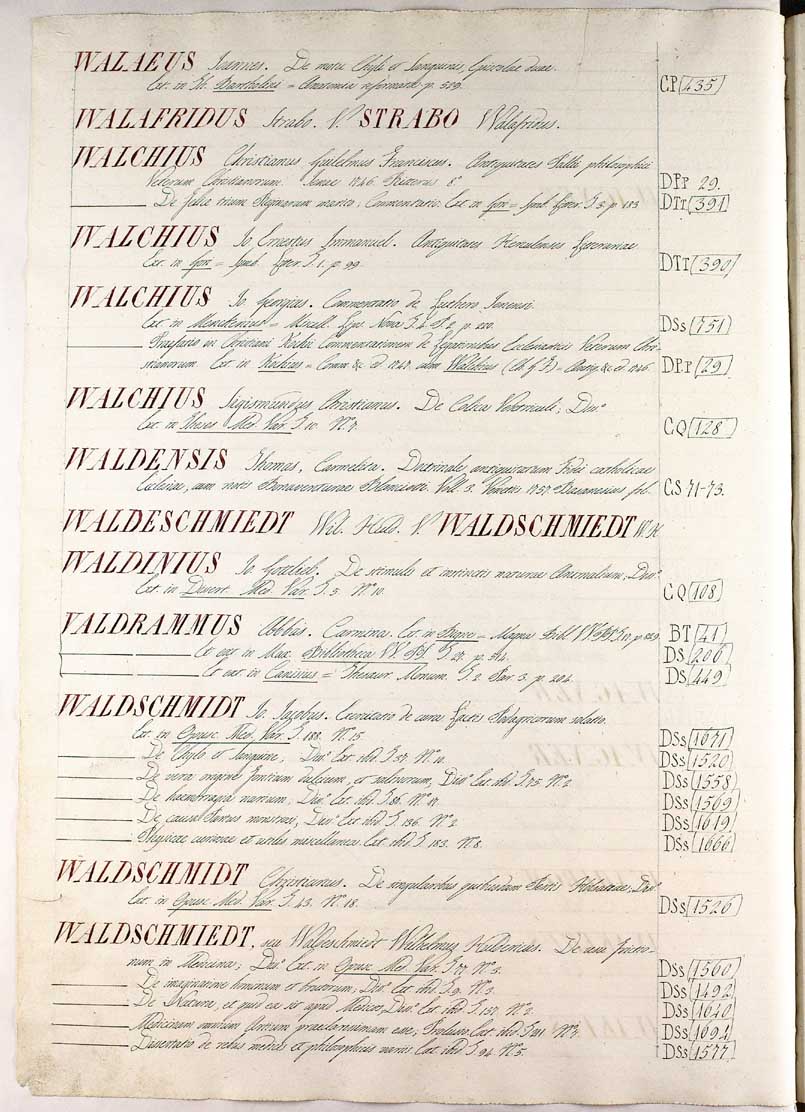 WALAEUS Joannes. De motu Chyli et Sanguinis, Epistolae duae.
Ext. in Th. Bartholini = Anatomia reformata p. 529. C.P. 435
WALAFRIDUS Strabo. V. STRABO Walafridus.
WALCHIUS Christianus Guilelmus Franciscus. Antiquitates Pallii philosophici
Veterum Christianorum. Jenae 1746. Ritterus 8° DPp 29.
De Julia trium Reginarum matre; Commentatio. Ext. in = T. 3. p. 183 DTt 391
WALCHIUS Jo. Ernestus Immanuel. Antiquitates Herculenses Literariae
Ext. in = T. 1. p. 99. DTt 390
WALCHIUS Jo. Georgius. Commentatio de Luthero Jenensi.
Ext. in Menckenius = Miscell. Lips. Nova T. 4. P. 2. p. 220. DSs 751
Praefatio in Christiani Kortii Commentationem de Legationibus Ecclesiasticis Veterum Chri-
stianorum. Ext. in = Comm. &c. ed. 1747. cum Walchius (Ch. G. F.) = Antiq. &c. ed. 1746. DPp 29
WALCHIUS Sigismundus Christianus. De Colica ; Diss.
Ext. in Theses Med. Var. T. 10. N.° 7. CQ 128
WALDENSIS Thomas, Carmelita. Doctrinale antiquitatum Fidei catholicae
Ecclesiae, cum notis Bonaventurae Blanciotti. Voll. 3. Venetiis 1757. Bassanesius fol. C.S 71-73.
WALDESCHMIEDT Wil. Huld. V. WALDSCHMIEDT W. H.
WALDINIUS Jo. Gottlieb. De stimulis et instinctis naturae Animalium; Diss.
Ext. in Dissert. Med. Var. T. 5. N.° 10. CQ 108
VALDRAMMUS Abbas. Carmina. Ext. in Bigne = Magna Bibl. VV. PP. T. BT 41
Et ext. in Max. Bibliotheca VV. PP. T. 27. p. DS 206
Et ext. in Canisius = Thesaur. Monum. T. 2. Par. 3. p. 204. DS 449
WALDSCHMIDT Jo. Jacobus. de cura Lactis Podagricorum solatio.
Ext. in Opusc. Med. Var. T. 188. N. 15. DSs 1671
De Chylo et Sanguine; Diss. Ext. ibid. T. 37. N. 11. DSs 1520
De vera origine Fontium dulcium, et salsorum; Diss. Ext. ibid. T. 75. N.° 2. DSs 1558
De haemorragia narium; Diss. Ext. ibid. T. 86. N.° 17. DSs 1569
De causa Partus monstrosi; Diss. Ext. ibid. T. 136. N.° 2. DSs 1619
Physicae curiosae et utiles miscellanea. Ext. ibid. T. 183. N.° 8. DSs 1666
WALDSCHMIDT Christianus. De singularibus quibusdam Terris Hassiacis; Diss.
Ext. in Opusc. Med. Var. T. 43. N. 18. DSs 1526
WALDSCHMIEDT, seu Waldeschmiedt Wilhelmus Huldericus. De usu
in Medicina; Diss. Ext. in Opusc. Med. Var. T. 77. N.° 5. DSs 1560
De imaginatione hominum et brutorum; Diss. Ext. ibid. T. 9. N.° 2. DSs 1492
De Natura, et quid ea sit apud Medicos; Diss. Ext. ibid. T. 157. N.° 2. DSs 1640
Medicinam omnium Artium praestantissimam esse; Prolusio. Ext. ibid. T. 211. N.° 7. DSs 1694
Dissertatio de rebus medicis et philosophicis variis. Ext. ibid. T. 94. N.° 5. DSs 1577